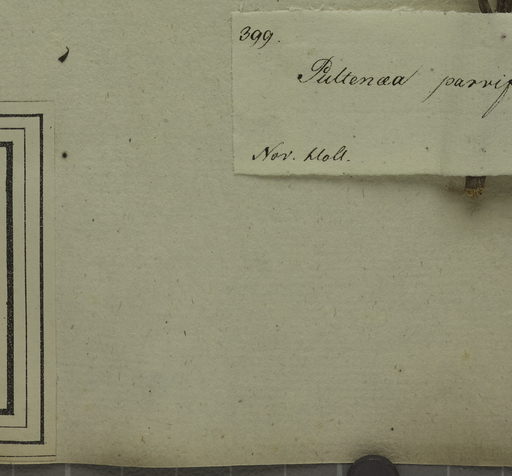 399.
Pultenæa parvif
Nov. Holl.